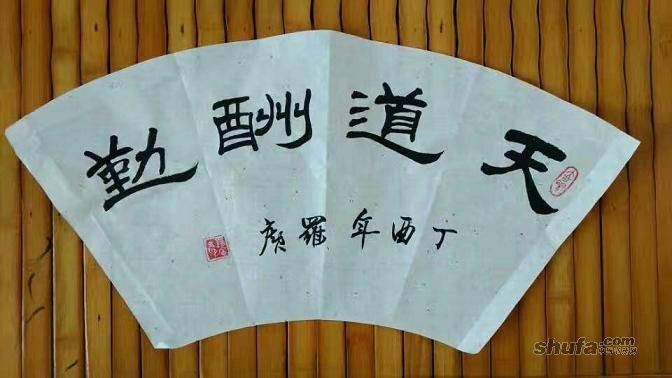 天道酬勤
丁酉年羅廣
shufa.com